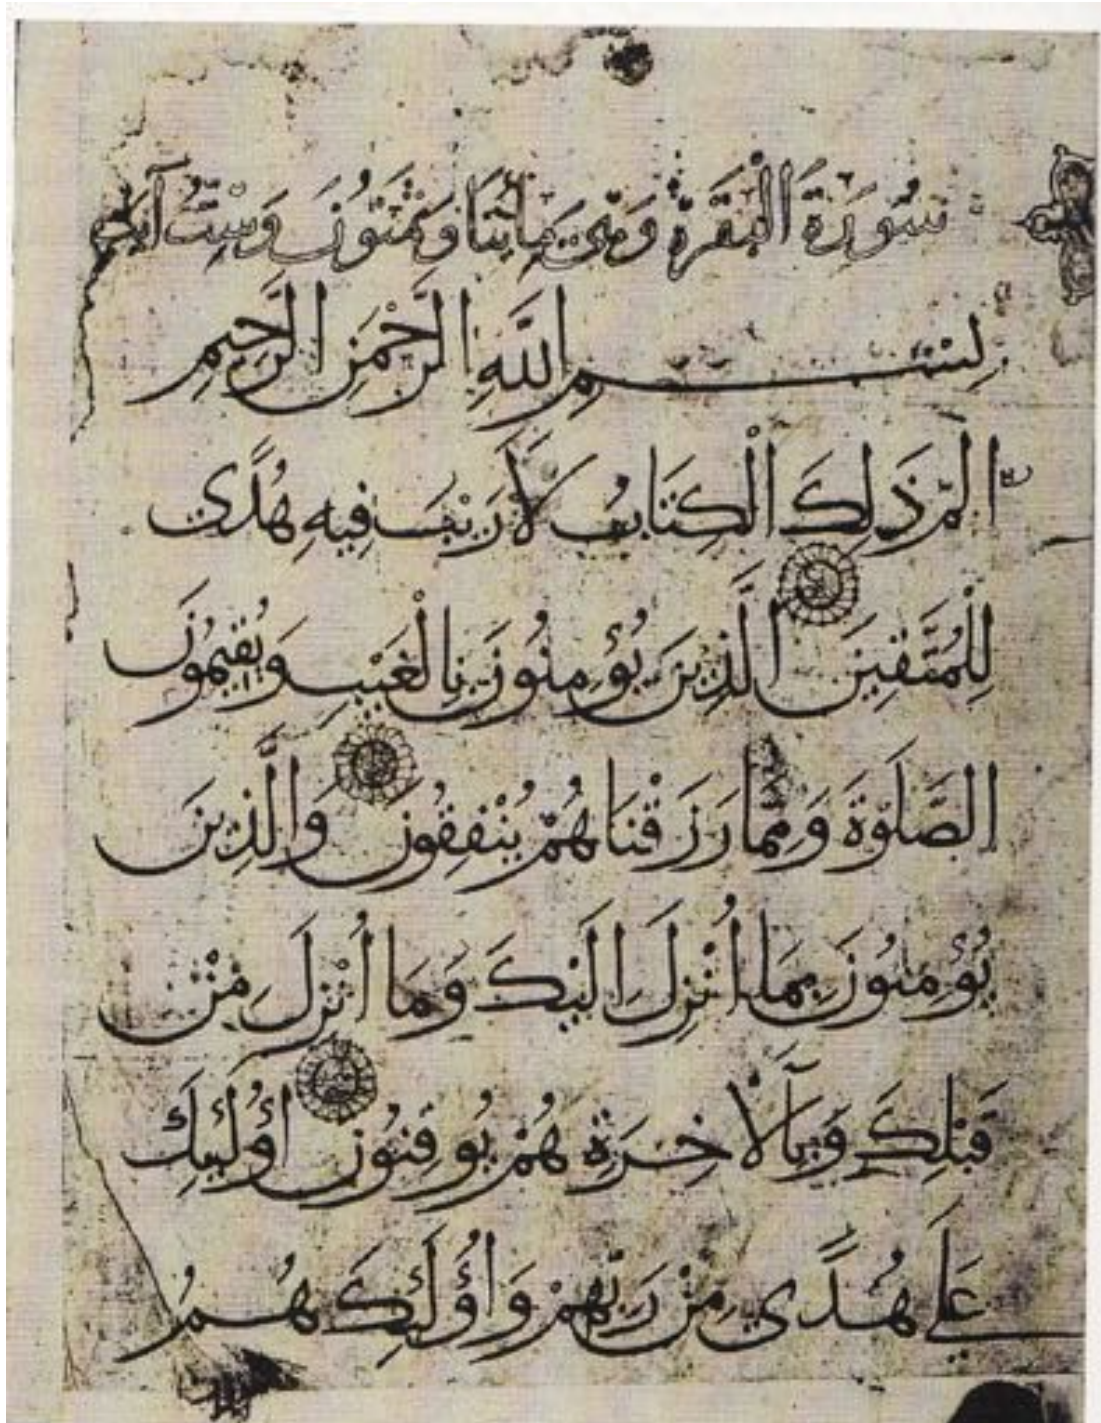 سُورَةُ الْبَقَرَةِ وَهِيَ مِائَتَا وَثَمَنُونَ وَسِتُّ آيَة
بِسْمِ اللَّهِ الرَّحْمَنِ الرَّحِيمِ
الم ذَلِكَ الْكِتَابُ لَا رَيْبَ فِيهِ هُدًى
لِلْمُتَّقِينَ الَّذِينَ يُؤْمِنُونَ بِالْغَيْبِ وَيُقِيمُونَ
الصَّلَوةَ وَمِمَّا رَزَقْنَاهُمْ يُنْفِقُونَ وَالَّذِينَ
يُؤْمِنُونَ بِمَا أُنْزِلَ إِلَيْكَ وَمَا أُنْزِلَ مِنْ
قَبْلِكَ وَبِالْآخِرَةِ هُمْ يُوقِنُونَ أُولَئِكَ
عَلَى هُدًى مِنْ رَبِّهِمْ وَأُولَئِكَ هُمُ